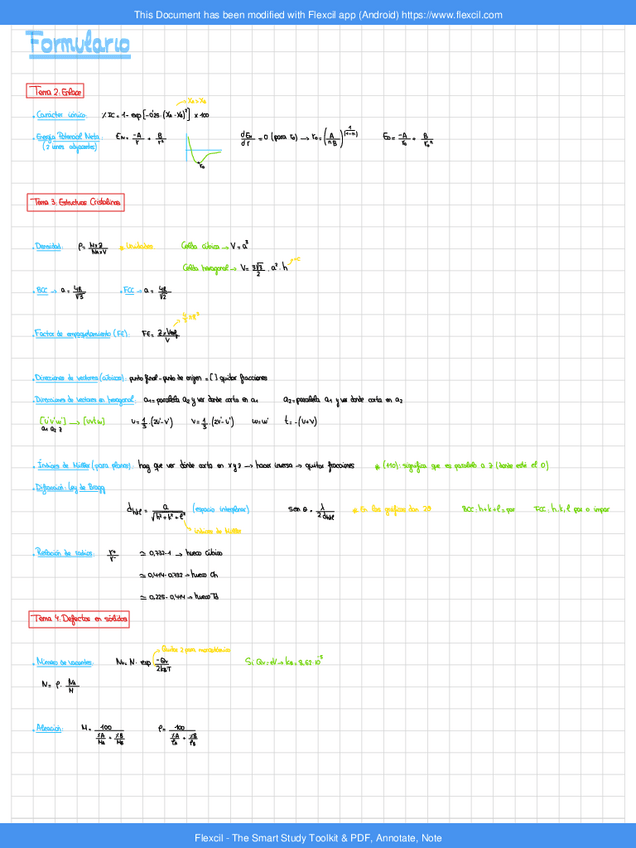 This Document has been modified with Flexcil app (Android) https://www.flexcil.com
Formulario
Tema 2: Enlace
· Carácter iónico: % IC = 1 - exp[-0'25·(XA - XB)²] × 100
XA > XB
· Energía Potencial Neta: EN = -A/r + B/rⁿ dEN/dr = 0 (para r0) → r0 = (A/nB)^(1/(1-n)) E0 = -A/r0 + B/r0ⁿ
(2 iones adyacentes)
r0
Tema 3: Estructuras Cristalinas
· Densidad: Celda cúbica → V = a³
Celda hexagonal → V = 3√3/2 · a² · h
· BCC → a = 4R/√3 · FCC → a = 4R/√2
· Factor de empaquetamiento (FE):
· Direcciones de vectores (cúbicos): punto final - punto de origen = [ ] quitar fracciones
· Direcciones de vectores en hexagonal: a1 = paralela a2 y ver donde corta en a1 a2 = paralela a1 y ver donde corta en a2
[u'v'w'] → [uvtw] u = 1/3·(2u'-v') v = 1/3·(2v'-u') w = w' t = -(u+v)
a1 a2 z
· Índices de Miller (para planos): hay que ver donde corta en x y z → hacer inversa → quitar fracciones * (110): significa que es paralela a z (donde esté el 0)
· Difracción: Ley de Bragg
dhkl = a/√(h²+k²+l²) (espacio interplanar) sen θ = λ/2dhkl * En las gráficas dan 2θ BCC: h+k+l = par FCC: h, k, l par o impar
Índices de Miller
· Relación de radios: ≈ 0,732-1 → hueco cúbico
≈ 0,414-0,732 → hueco Oh
≈ 0,225-0,414 → hueco Td
Tema 4: Defectos en sólidos
· Número de vacantes:
· Aleación:
Flexcil - The Smart Study Toolkit & PDF, Annotate, Note